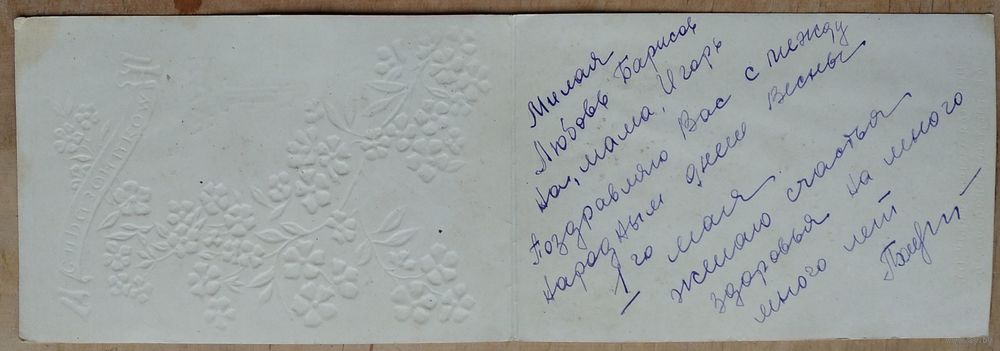 Милая
Любовь Барисов
на, мама, Игорь
Поздравляю Вас с между
народным днем Весны
1 го мая.
желаю счастья
здоровья на много
много лет